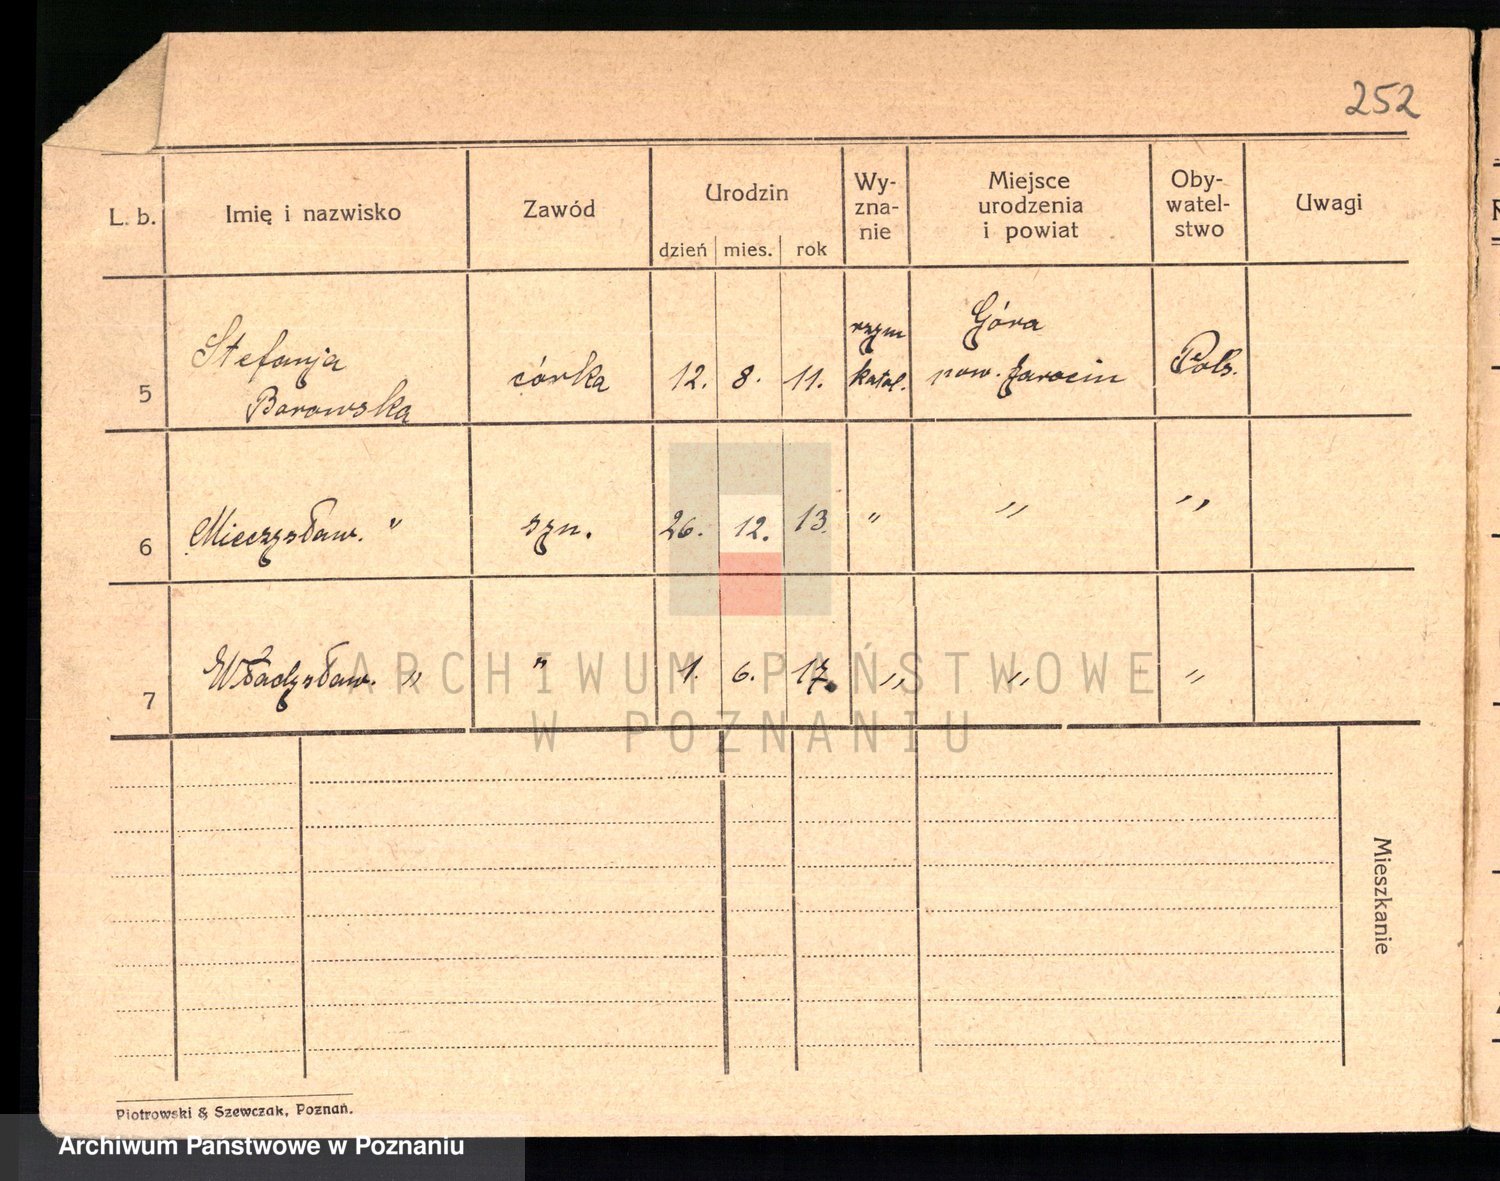 252
L. b. Imię i nazwisko Zawód Urodzin dzień mies. rok Wy- zna- nie Miejsce urodzenia i powiat Oby- watel- stwo Uwagi
5 Stefanja Borowska córka 12. 8. 11. rzym katol. Góra pow. Jarocin Pols.
6 Mieczysław. " syn. 26. 12. 13. " " "
7 Władysław. " " 1. 6. 17. " " "
Mieszkanie
ARCHIWUM PAŃSTWOWE
W POZNANIU
Piotrowski & Szewczak, Poznań.
Archiwum Państwowe w Poznaniu